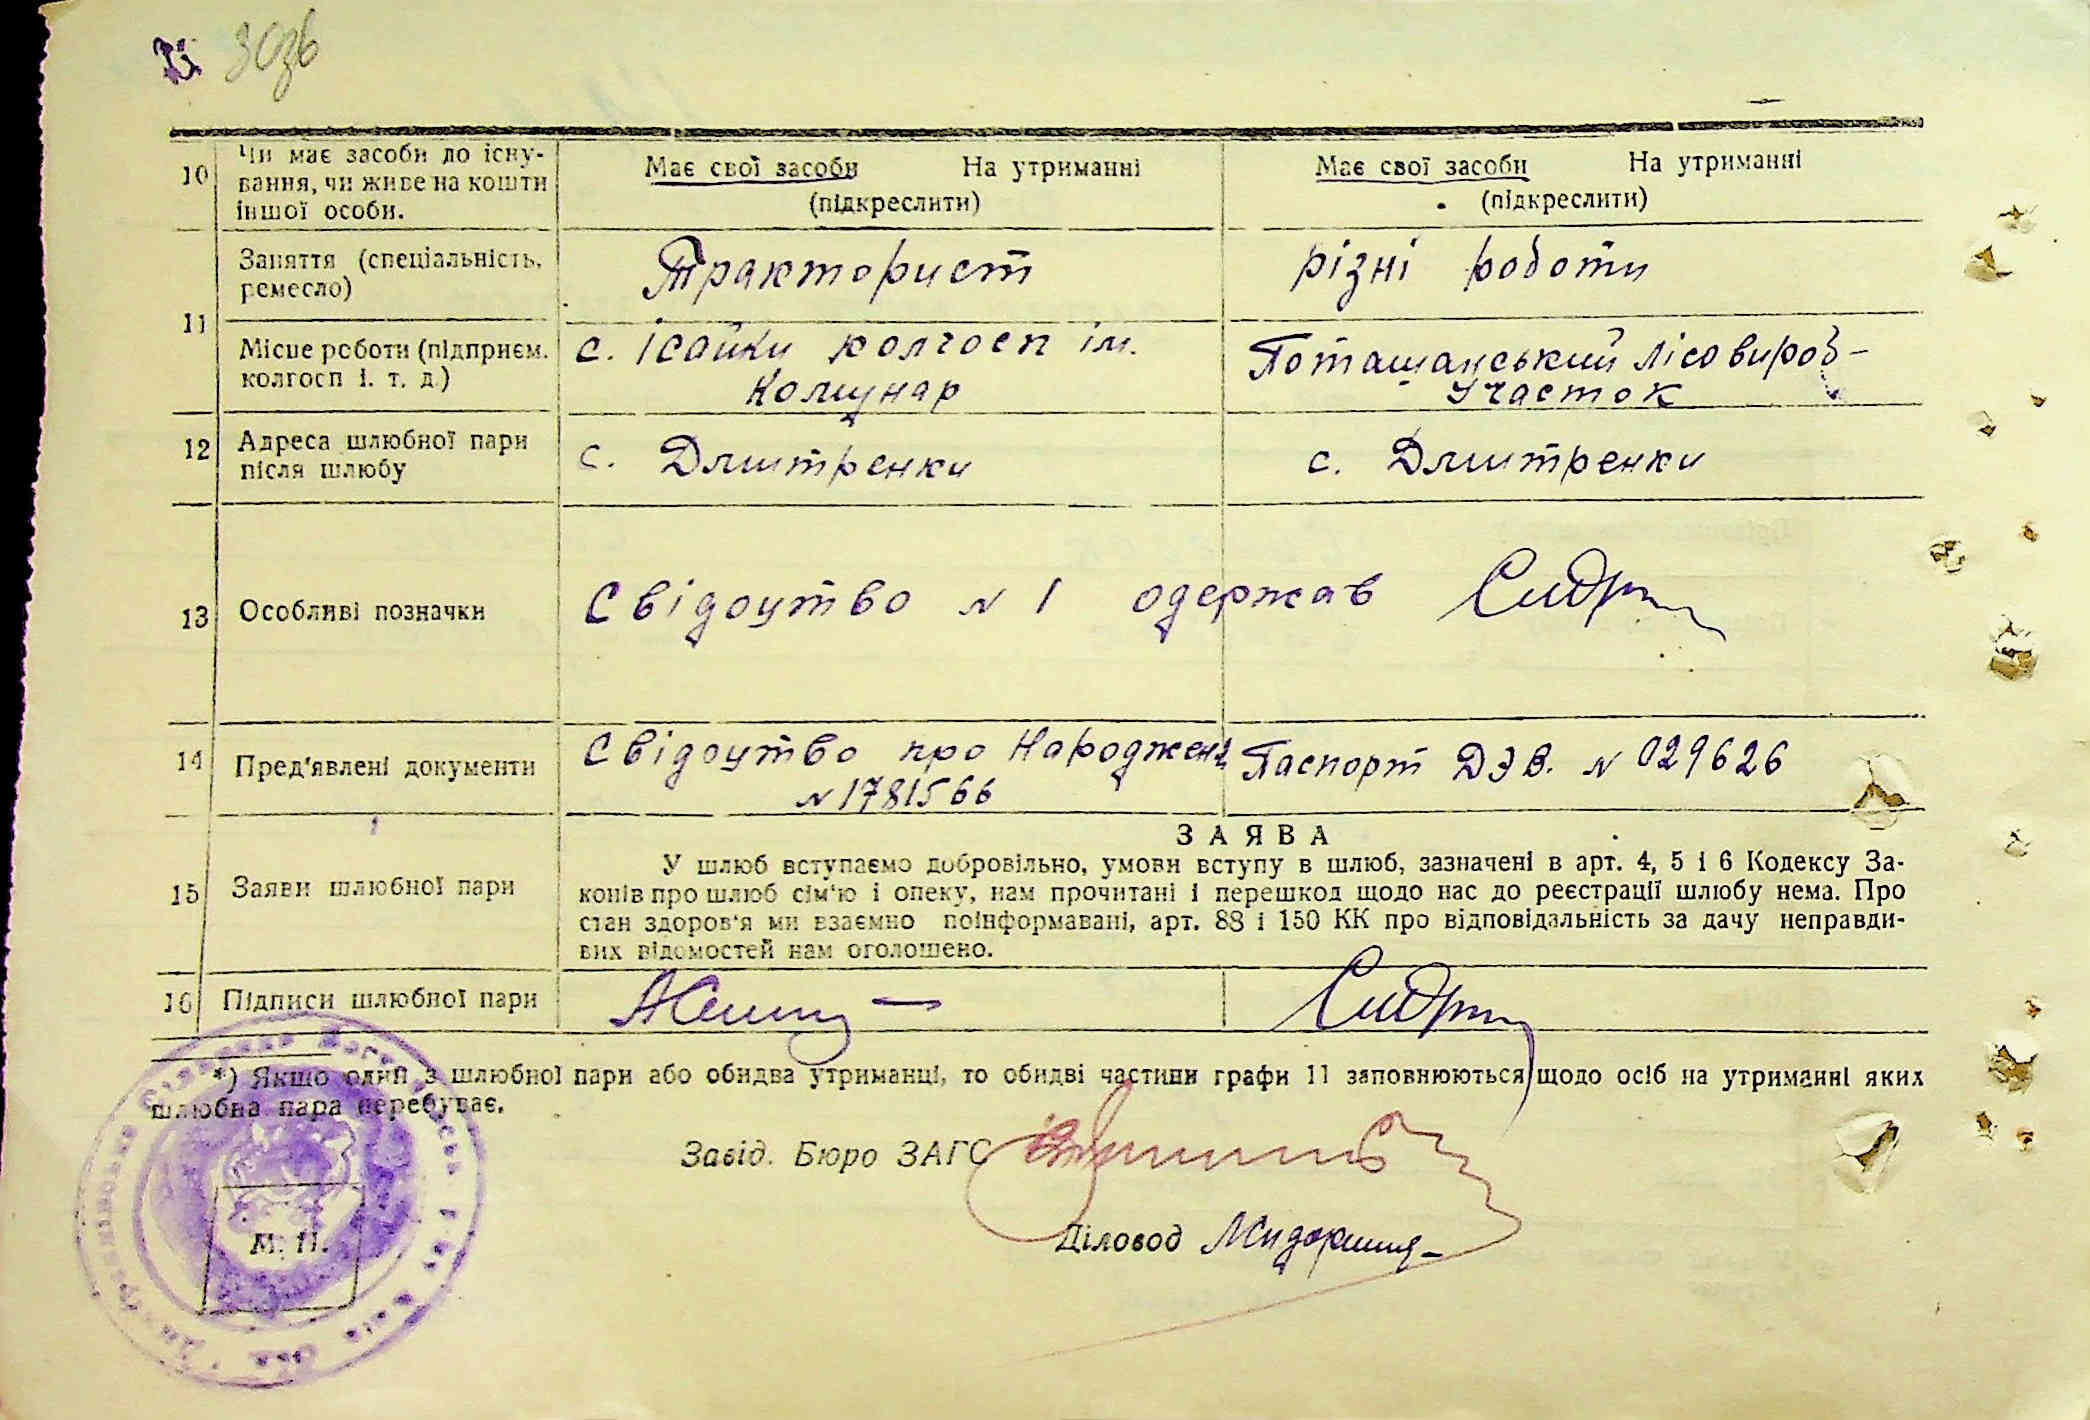 303б
10 Чи має засоби до існу-
вання, чи живе на кошти
іншої особи.
Має свої засоби На утриманні
(підкреслити)
Має свої засоби На утриманні
(підкреслити)
11
Заняття (спеціальність,
ремесло)
Тракторист
різні роботи
Місце роботи (підприєм.
колгосп і. т. д.)
с. Ісайки колгосп ім.
Комунар
Поташанський лісовироб-
участок
12 Адреса шлюбної пари
після шлюбу
с. Дмитренки
с. Дмитренки
13 Особливі позначки
Свідоцтво № 1 одержав
14 Пред'явлені документи
Свідоцтво про Народжен
№ 1781566
Паспорт ДЭВ. № 029626
15 Заяви шлюбної пари
ЗАЯВА
У шлюб вступаємо добровільно, умови вступу в шлюб, зазначені в арт. 4, 5 і 6 Кодексу За-
конів про шлюб сім'ю і опеку, нам прочитані і перешкод щодо нас до реєстрації шлюбу нема. Про
стан здоров'я ми взаємно поінформавані, арт. 88 і 150 КК про відповідальність за дачу неправди-
вих відомостей нам оголошено.
16 Підписи шлюбної пари
*) Якщо один з шлюбної пари або обидва утриманці, то обидві частини графи 11 заповнюються щодо осіб на утриманні яких
шлюбна пара перебуває.
Завід. Бюро ЗАГС
Діловод
М. П.